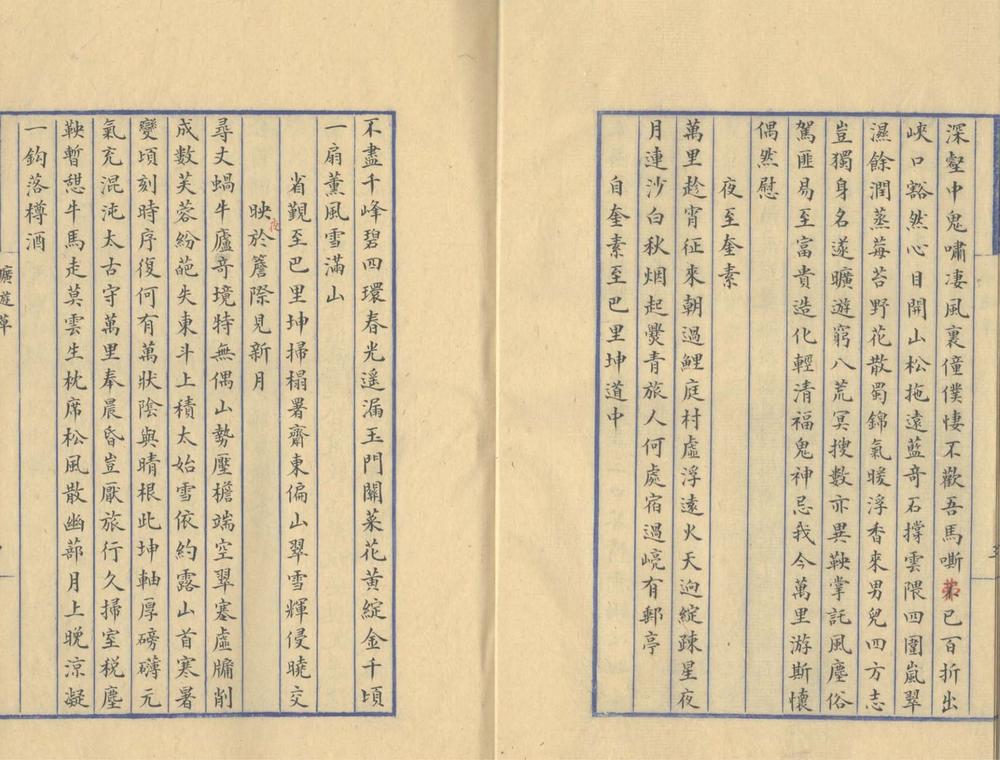 深壑中鬼嘯凄風裏僮僕悽不歡吾馬嘶弟已百折出
峽口豁然心目開山松拖遠藍奇石撐雲隈四圍嵐翠
濕餘潤蒸莓苔野花散蜀錦氣暖浮香來男兒四方志
豈獨身名遂曠遊窮八荒冥搜數亦異鞅掌託風塵俗
駕匪易至富貴造化輕清福鬼神忌我今萬里游斯懷
偶然慰
夜至奎素
萬里趁宵征來朝過鯉庭村虛浮遠火天迥綻疎星夜
月連沙白秋烟起爨青旅人何處宿過峴有郵亭
自奎素至巴里坤道中
不盡千峰碧四環春光遥漏玉門關菜花黃綻金千頃
一扇薰風雪滿山
省覲至巴里坤掃榻署齋東偏山翠雪輝侵曉交
映於簷際見新月
夜
尋丈蝸牛廬奇境特無偶山勢壓檐端空翠塞虛牖削
成數芙蓉紛葩失東斗上積太始雪依約露山首寒暑
變頃刻時序復何有萬狀陰與晴根此坤軸厚磅礴元
氣充混沌太古守萬里奉晨昏豈厭旅行久掃室税塵
鞅暫憇牛馬走莫雲生枕席松風散幽蔀月上晚凉凝
一鈎落樽酒
曠遊草